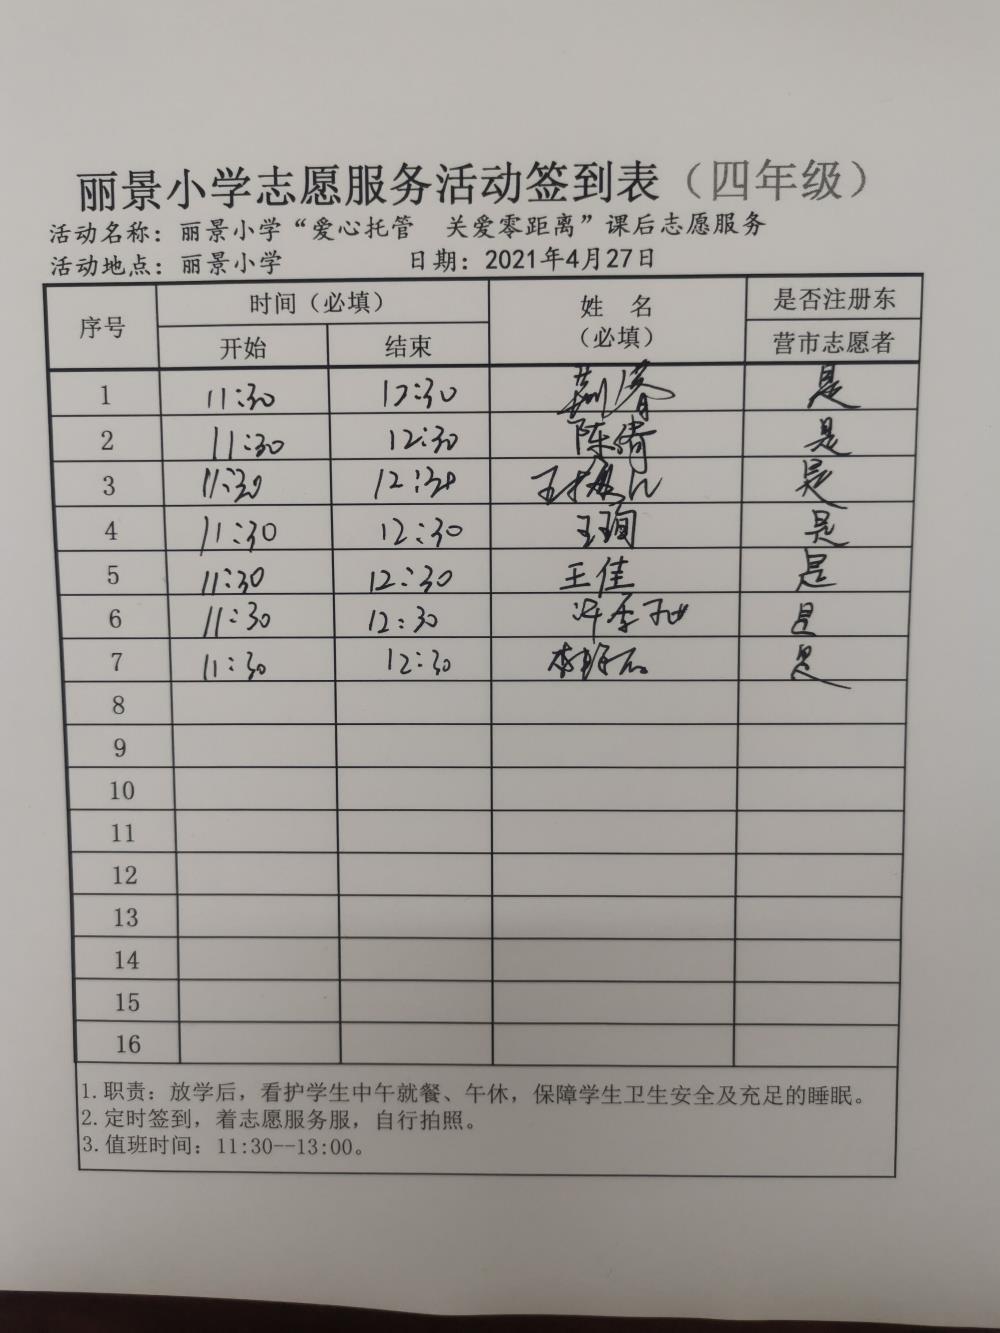 丽景小学志愿服务活动签到表（四年级）
活动名称：丽景小学“爱心托管 关爱零距离”课后志愿服务
活动地点：丽景小学 日期：2021年4月27日
序号 时间（必填） 姓 名（必填） 是否注册东营市志愿者
开始 结束
1 11:30 12:30 是
2 11:30 12:30 陈倩 是
3 11:30 12:30 王 是
4 11:30 12:30 王珣 是
5 11:30 12:30 王佳 是
6 11:30 12:30 是
7 11:30 12:30 李 是
8
9
10
11
12
13
14
15
16
1.职责：放学后，看护学生中午就餐、午休，保障学生卫生安全及充足的睡眠。
2.定时签到，着志愿服务服，自行拍照。
3.值班时间：11:30--13:00。